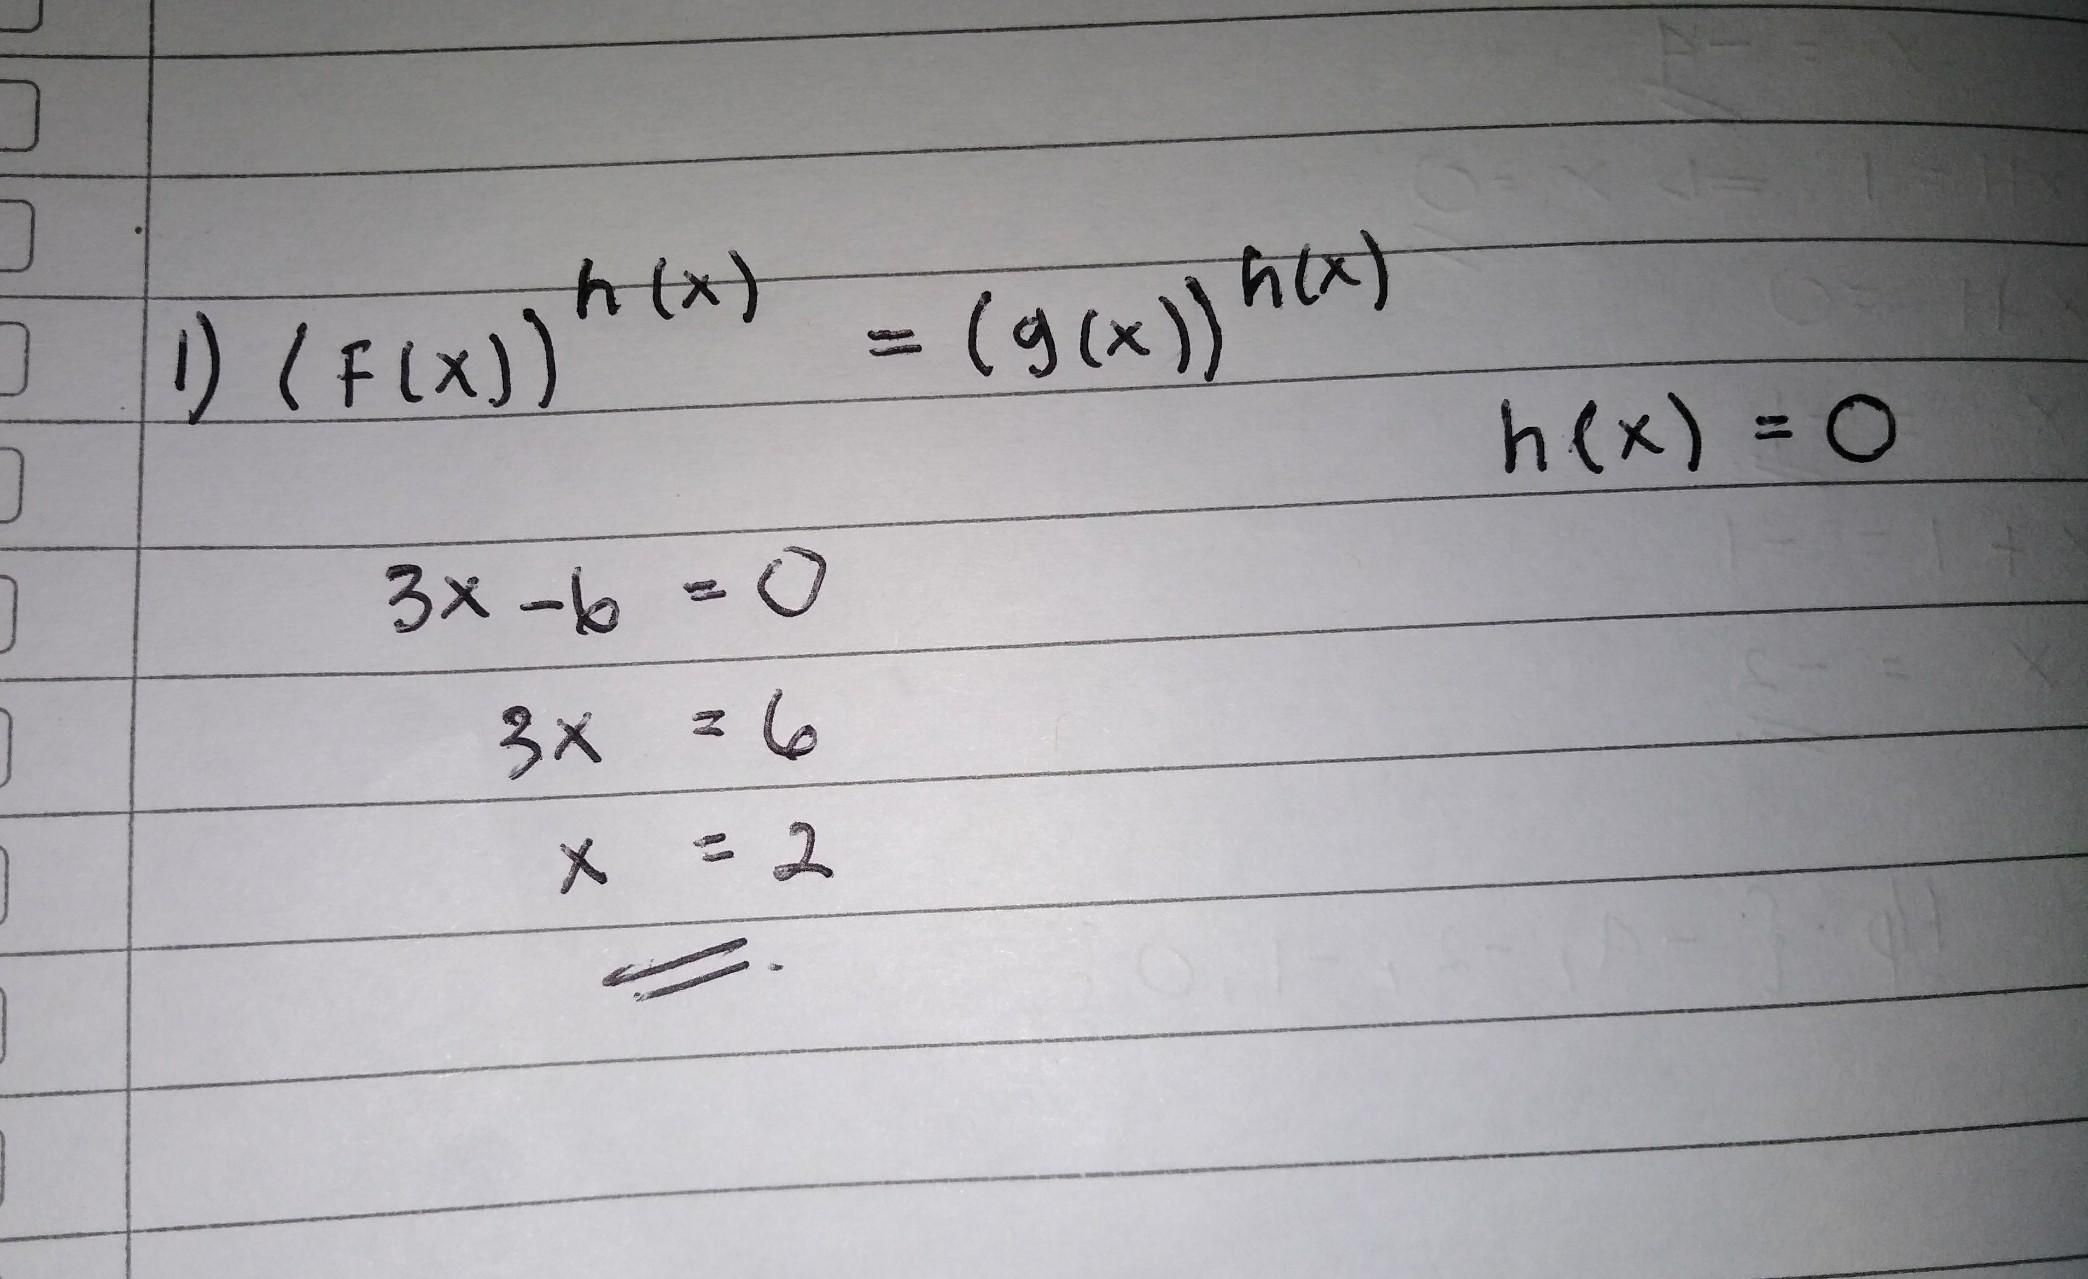 1) (F(x))^h(x) = (g(x))^h(x)
h(x) = 0
3x - 6 = 0
3x = 6
x = 2